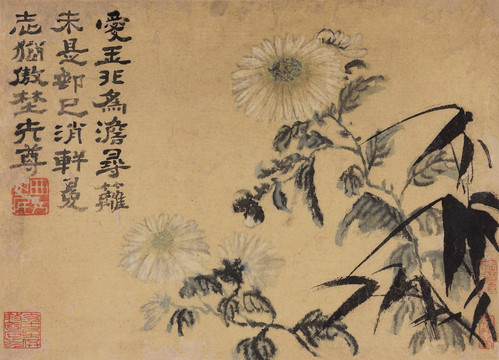 愛玉非為澹尋籬
未是邨已消軒冕
志猶傲埜先尊